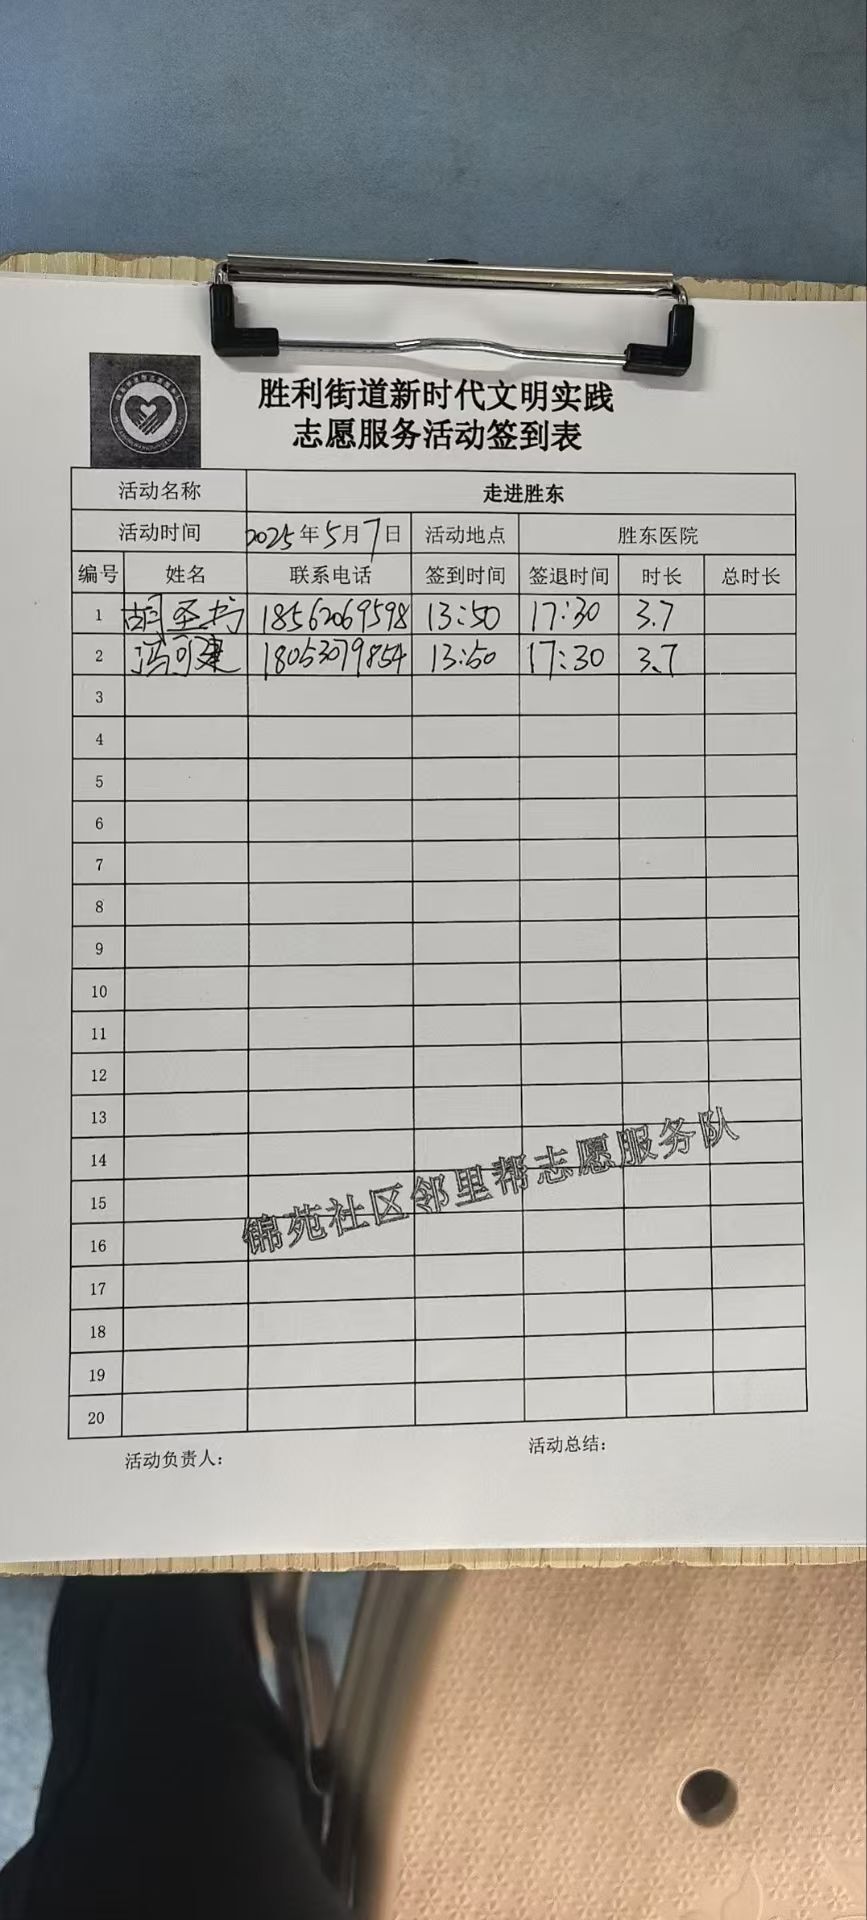 胜利街道新时代文明实践
志愿服务活动签到表
活动名称 走进胜东
活动时间 2025年5月7日 活动地点 胜东医院
编号 姓名 联系电话 签到时间 签退时间 时长 总时长
1 胡圣 18562069598 13:50 17:30 3.7
2 冯可建 18053079854 13:50 17:30 3.7
3
4
5
6
7
8
9
10
11
12
13
14
15
16
17
18
19
20
锦苑社区邻里帮志愿服务队
活动负责人: 活动总结: